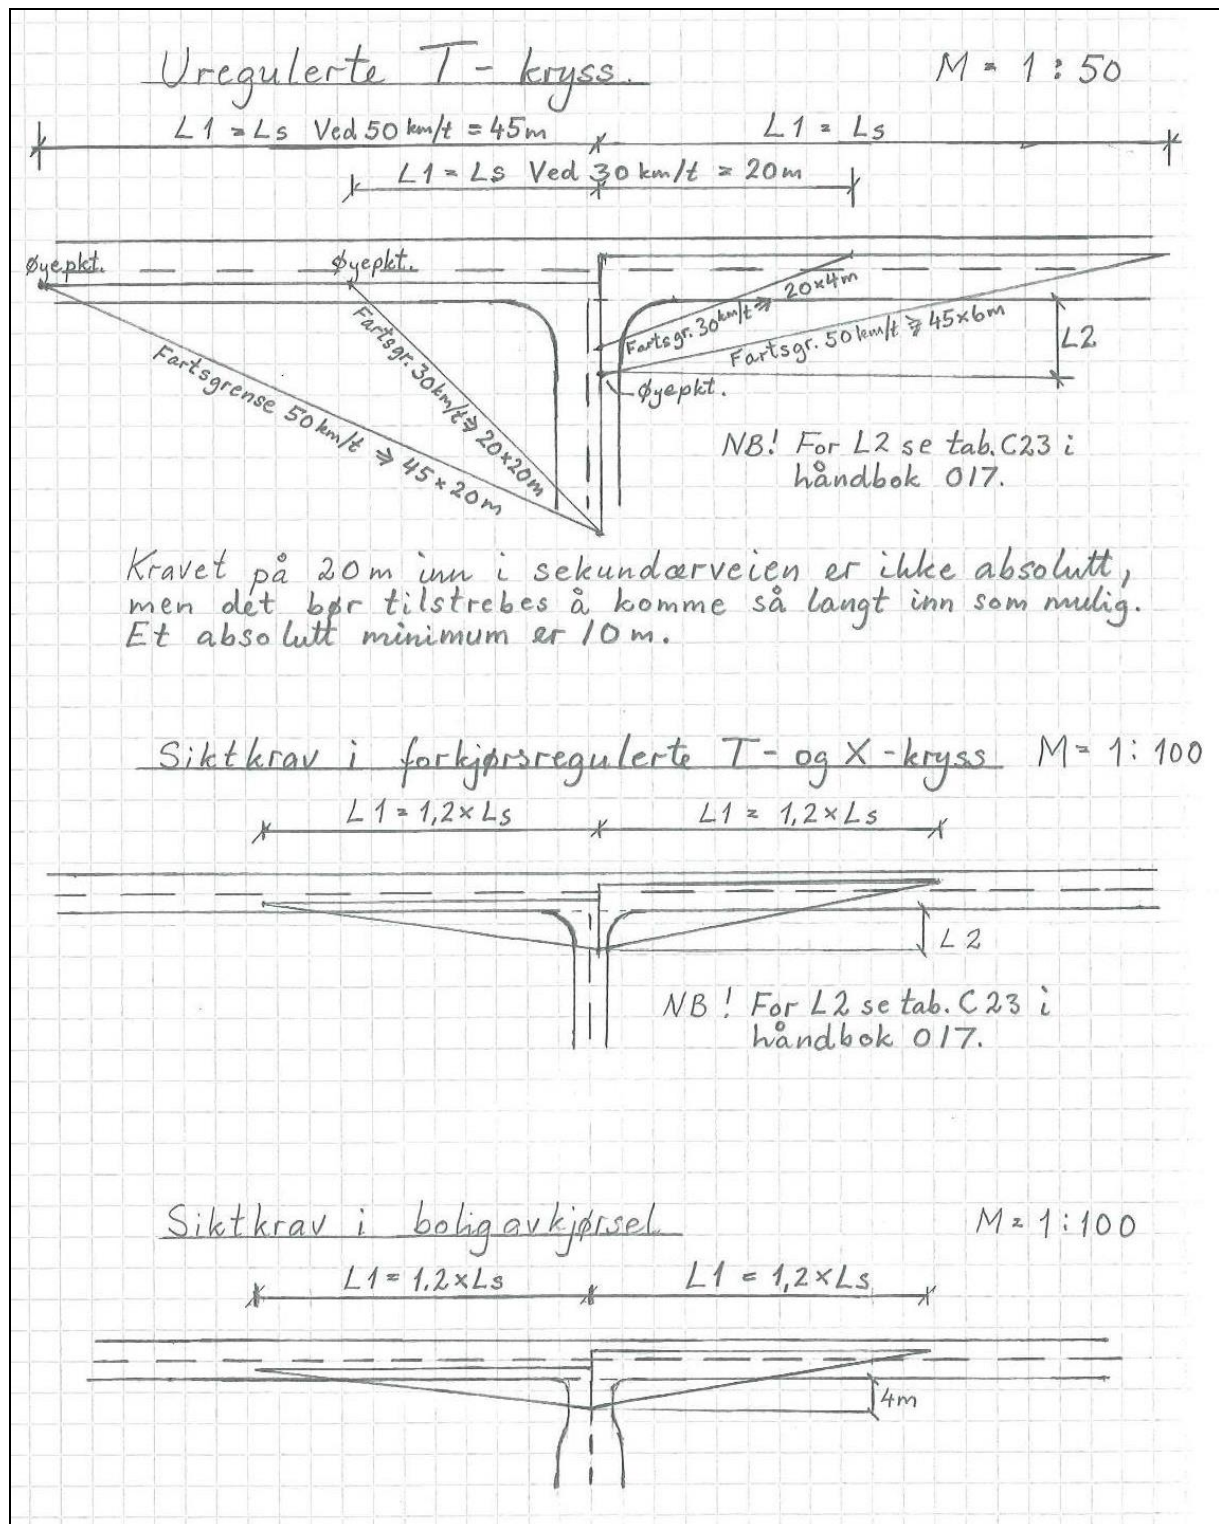 Uregulerte T-kryss. M = 1 : 50
L1 = Ls Ved 50 km/t = 45m
L1 = Ls
L1 = Ls Ved 30 km/t = 20m
Øyepkt.
Øyepkt.
Fartsgr. 30km/t ⇒ 20×4m
Fartsgr. 50 km/t ⇒ 45×6m
L2
Øyepkt.
Fartsgr. 30km/t ⇒ 20×20m
Fartsgrense 50 km/t ⇒ 45 × 20m
NB! For L2 se tab. C23 i
håndbok 017.
Kravet på 20m inn i sekundærveien er ikke absolutt,
men det bør tilstrebes å komme så langt inn som mulig.
Et absolutt minimum er 10m.
Siktkrav i forkjørsregulerte T- og X-kryss M = 1 : 100
L1 = 1,2×Ls
L1 = 1,2×Ls
L2
NB! For L2 se tab. C23 i
håndbok 017.
Siktkrav i boligavkjørsel M = 1:100
L1 = 1,2×Ls
L1 = 1,2×Ls
4m